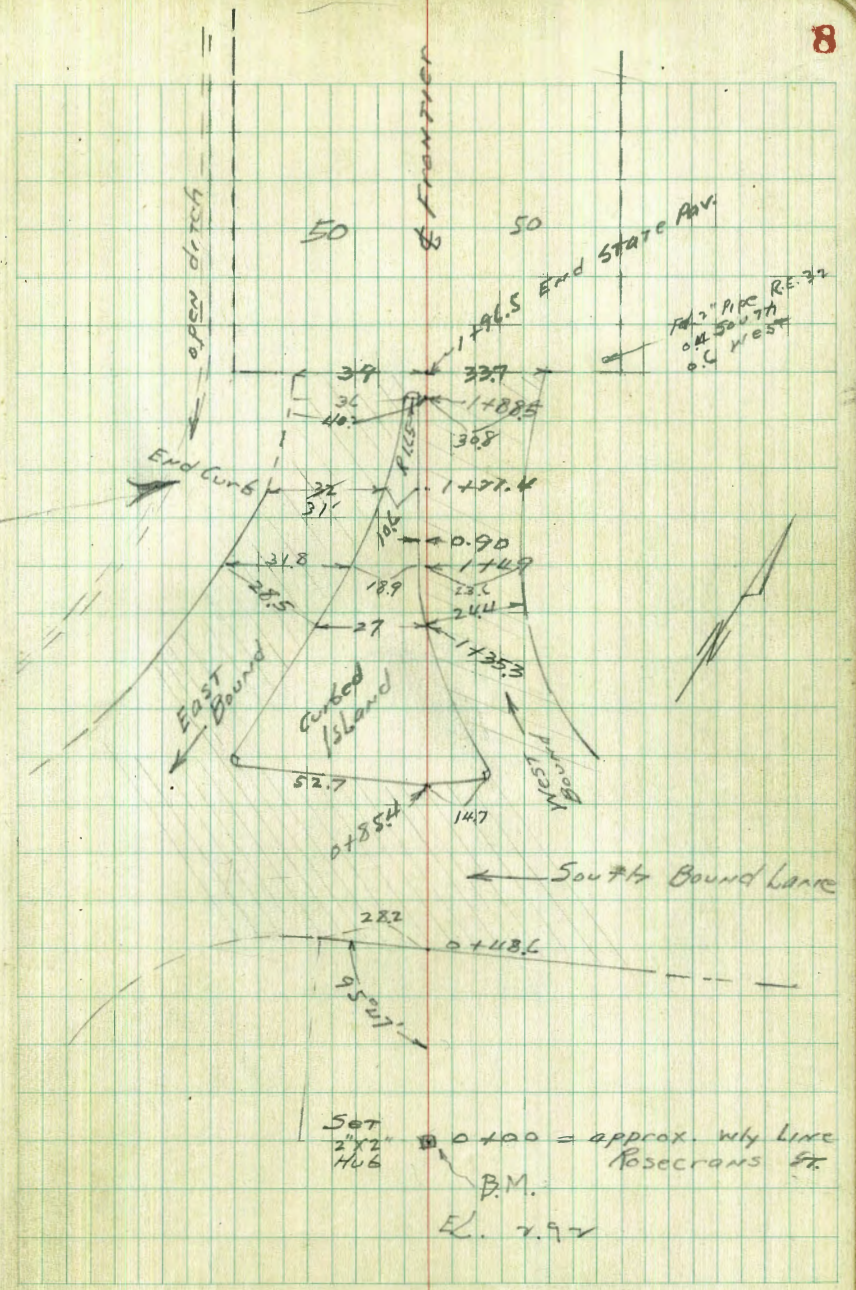 8
℄ Frontier
open ditch
50
50
1+96.5 End State Pav.
Fd. 2" Pipe R.E. 32
0.4 South
0.6 West
39
33.7
36
1+88.5
40.2
30.8
End Curb
32
31'
10.6
0.90
31.8
1+49
18.9
23.6
28.5
24.4
27
1+35.3
East
Bound
Curbed
Island
West
Bound
52.7
14.7
0+85.4
South Bound Lane
28.2
0+48.6
95°27'
Set
2"x2"
Hub
0+00 = approx. Wly Line
Rosecrans St.
B.M.
El. 2.92